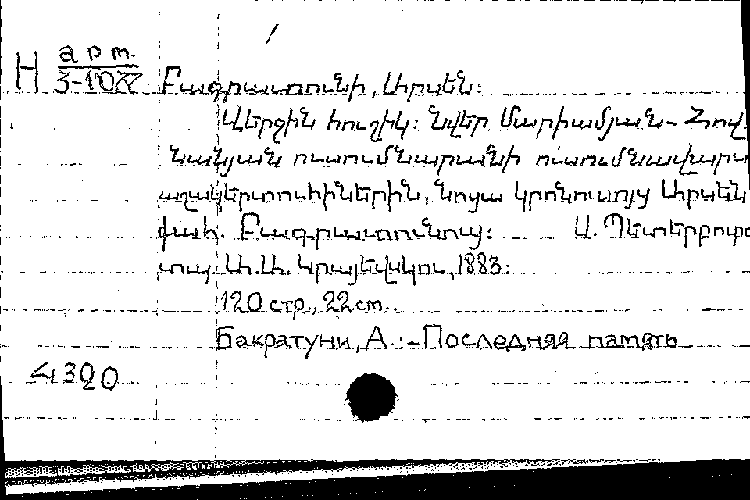 Н арт.
3-10
Բագրատունի, Արսեն:
Վերջին հուշիկ: Նվեր Մարիամյան - Հով
նանյան ուսումնարանի ուսումնավարտ
աշակերտուհիներին, նոցա կրոնուսույց Արսեն
փահ. Բագրատունւոյ: Ս. Պետերբուրգ
տպ. Ա.Ա. Կրայեվսկու, 1883.
120 стр., 22 см.
Бакратуни, А. :- Последняя память
4320